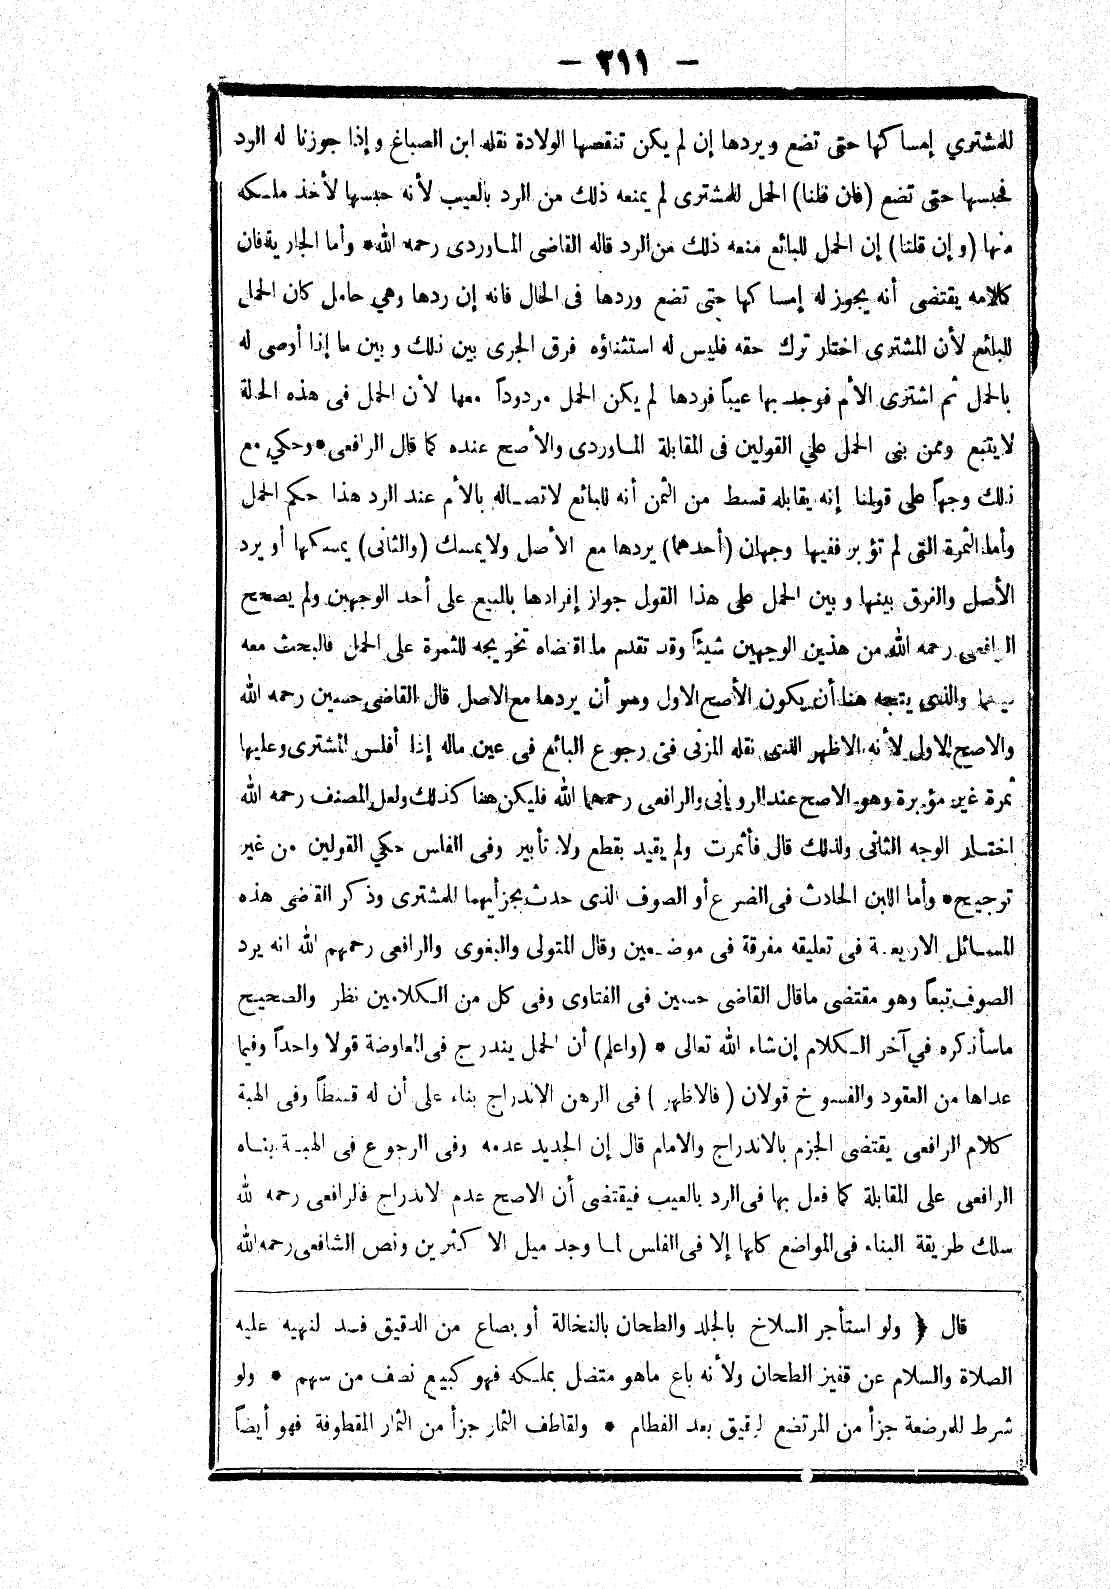 — ٢١١ —
للمشتري إمساكها حتى تضع ويردها إن لم يكن تنقصها الولادة نقله ابن الصباغ وإذا جوزنا له الرد
فحبسها حتى تضع (فان قلنا) الحمل للمشترى لم يمنعه ذلك من الرد بالعيب لأنه حبسها لأخذ ملكه
منها (وإن قلنا) إن الحمل للبائع منعه ذلك من الرد قاله القاضى الماوردى رحمه الله* وأما الجارية فان
كلامه يقتضى أنه يجوز له إمساكها حتى تضع وردها فى الحال فانه إن ردها وهي حامل كان الحمل
للبائع لأن المشترى اختار ترك حقه فليس له استثناؤه فرق الجرى بين ذلك وبين ما إذا أوصى له
بالحمل ثم اشترى الأم فوجد بها عيباً فردها لم يكن الحمل مردوداً معها لأن الحمل فى هذه الحالة
لا يتبع وممن بنى الحمل علي القولين فى المقابلة الماوردى والأصح عنده كما قال الرافعى* وحكي مع
ذلك وجهاً على قولنا إنه يقابله قسط من الثمن أنه للبائع لاتصاله بالأم عند الرد هذا حكم الحمل
وأما الثمرة التى لم تؤبر ففيها وجهان (أحدهما) يردها مع الأصل ولا يمسك (والثانى) يمسكها أو يرد
الأصل والفرق بينها وبين الحمل على هذا القول جواز إفرادها بالبيع على أحد الوجهين ولم يصحح
الرافعى رحمه الله من هذين الوجهين شيئاً وقد تقدم ما اقتضاه تخريجه للثمرة على الحمل فالبحث معه
فيهما والذى يتجه هنا أن يكون الأصح الاول وهو أن يردها مع الاصل قال القاضى حسين رحمه الله
والاصح الاول لأنه الاظهر الذى نقله المزنى فى رجوع البائع فى عين ماله إذا أفلس المشترى وعليها
ثمرة غير مؤبرة وهو الاصح عند الرويانى والرافعى رحمهما الله فليكن هنا كذلك ولعل المصنف رحمه الله
اختار الوجه الثانى ولذلك قال فأثمرت ولم يقيد بقطع ولا تأبير وفى الفلس حكي القولين من غير
ترجيح* وأما اللبن الحادث فى الضرع أو الصوف الذى حدث بجزأيهما للمشترى وذكر القاضى هذه
المسائل الاربعة فى تعليقه مفرقة فى موضعين وقال المتولى والبغوى والرافعى رحمهم الله انه يرد
الصوف تبعاً وهو مقتضى ماقال القاضى حسين فى الفتاوى وفى كل من الكلامين نظر والصحيح
ماسأذكره في آخر الكلام إن شاء الله تعالى * (واعلم) أن الحمل يندرج فى المعاوضة قولا واحداً وفيما
عداها من العقود والفسوخ قولان (فالاظهر) فى الرهن الاندراج بناء على أن له قسطاً وفى الهبة
كلام الرافعى يقتضى الجزم بالاندراج والامام قال إن الجديد عدمه وفى الرجوع فى الهبة بناه
الرافعى على المقابلة كما فعل بها فى الرد بالعيب فيقتضى أن الاصح عدم الاندراج فالرافعى رحمه الله
سلك طريقة البناء فى المواضع كلها إلا فى الفلس لما وجد ميل الاكثرين ونص الشافعى رحمه الله
قال ﴿ ولو استأجر السلاخ بالجلد والطحان بالنخالة أو بصاع من الدقيق فسد لنهيه عليه
الصلاة والسلام عن قفيز الطحان ولأنه باع ماهو متصل بملكه فهو كبيع نصف من سهم * ولو
شرط للمرضعة جزأ من المرتضع الرقيق بعد الفطام * ولقاطف الثمار جزأ من الثمار المقطوفة فهو أيضاً